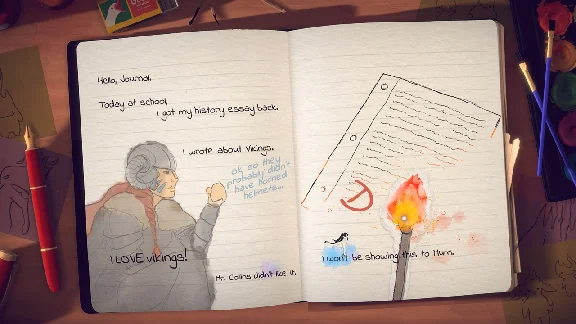 Hello, Journal.
Today at school,
I got my history essay back.
I wrote about Vikings.
ok so they
probably didn't
have horned
helmets...
I LOVE vikings!
Mr. Collins didn't like it.
D
I won't be showing this to Mum.